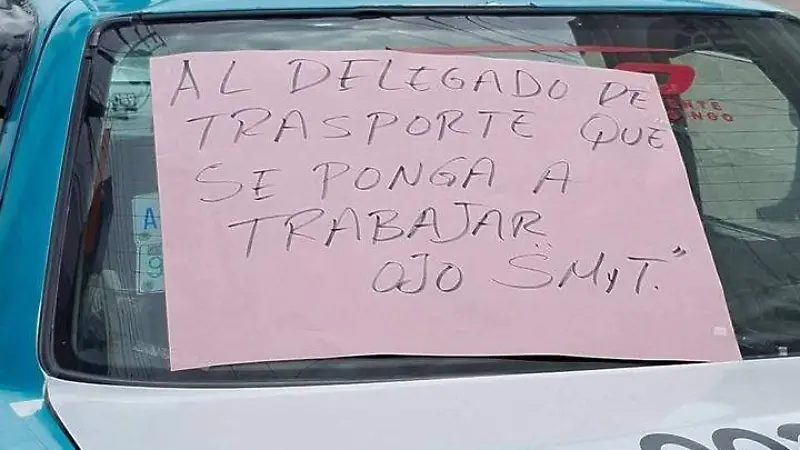 AL DELEGADO DE
TRASPORTE QUE
SE PONGA A
TRABAJAR
OJO "SMyT."